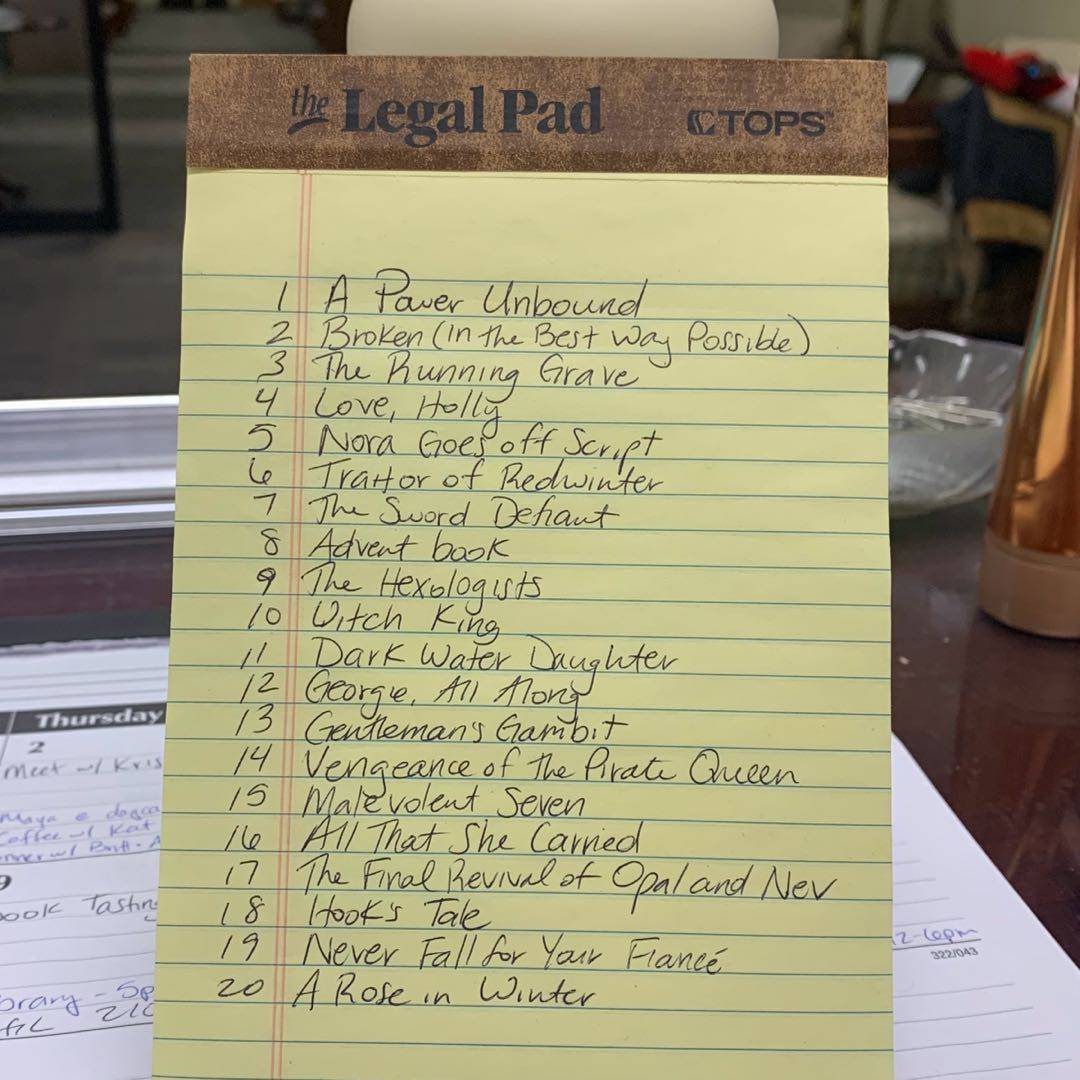 the Legal Pad TOPS
1 A Power Unbound
2 Broken (in the Best Way Possible)
3 The Running Grave
4 Love, Holly
5 Nora Goes off Script
6 Traitor of Redwinter
7 The Sword Defiant
8 Advent book
9 The Hexologists
10 Witch King
11 Dark Water Daughter
12 Georgie, All Along
13 Gentleman's Gambit
14 Vengeance of the Pirate Queen
15 Malevolent Seven
16 All That She Carried
17 The Final Revival of Opal and Nev
18 Hook's Tale
19 Never Fall for Your Fiancé
20 A Rose in Winter
Thursday
2
Meet w/ Kris
Maya e
Coffee w/ Kat
9
book Tasting
brary - 5p
210
12-6pm
322/043